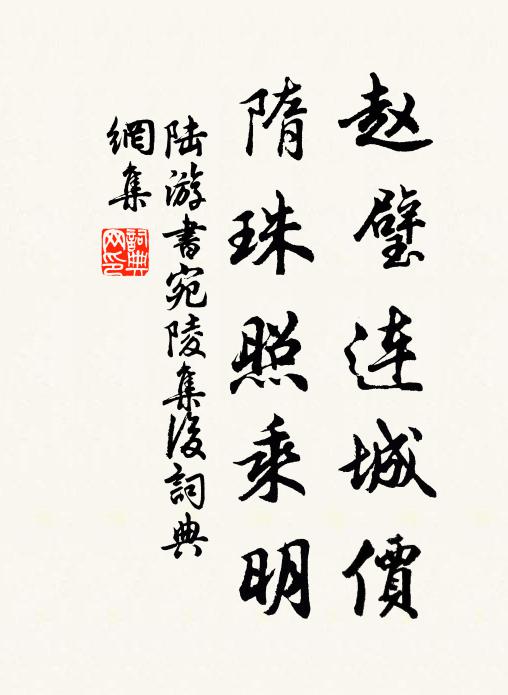 赵璧连城價
隋珠照乘明
陆游書宛陵集後詞典
網集
詞典网印